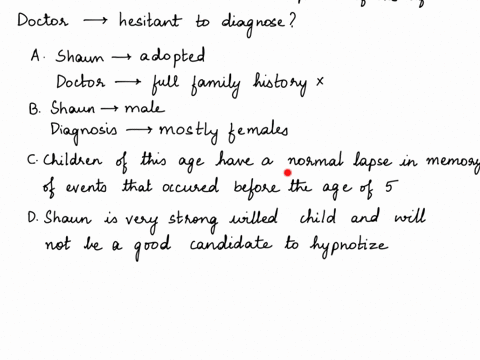 Doctor → hesitant to diagnose?
A. Shaun → adopted
Doctor → full family history ×
B. Shaun → male
Diagnosis → mostly females
C. Children of this age have a normal lapse in memory
of events that occured before the age of 5
D. Shaun is very strong willed child and will
not be a good candidate to hypnotize